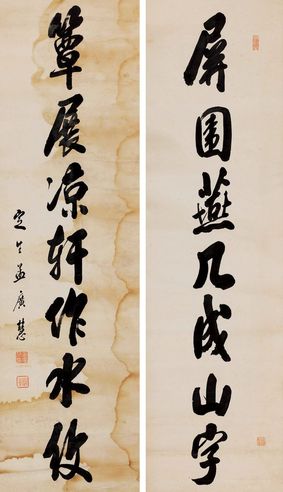 屏圍燕几成山字
簟展涼軒作水紋
定生孟廣慧